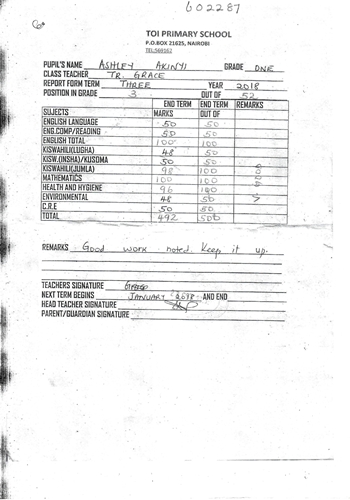 602287
TOI PRIMARY SCHOOL
P.O.BOX 21625, NAIROBI
TEL:569162
PUPIL'S NAME ASHLEY AKINYI GRADE ONE
CLASS TEACHER TR. GRACE
REPORT FORM TERM THREE YEAR 2018
POSITION IN GRADE 3 OUT OF 52
END TERM END TERM REMARKS
SUJECTS MARKS OUT OF
ENGLISH LANGUAGE 50 50
ENG.COMP/READING 50 50
ENGLISH TOTAL 100 100
KISWAHILI(LUGHA) 48 50
KISW.(INSHA)/KUSOMA 50 50
KISWAHILI(JUMLA) 98 100
MATHEMATICS 100 100
HEALTH AND HYGIENE 96 100
ENVIRONMENTAL 48 50
C.R.E 50 50
TOTAL 492 500
REMARKS Good work noted. Keep it up.
TEACHERS SIGNATURE
NEXT TERM BEGINS JANUARY AND END
HEAD TEACHER SIGNATURE
PARENT/GUARDIAN SIGNATURE